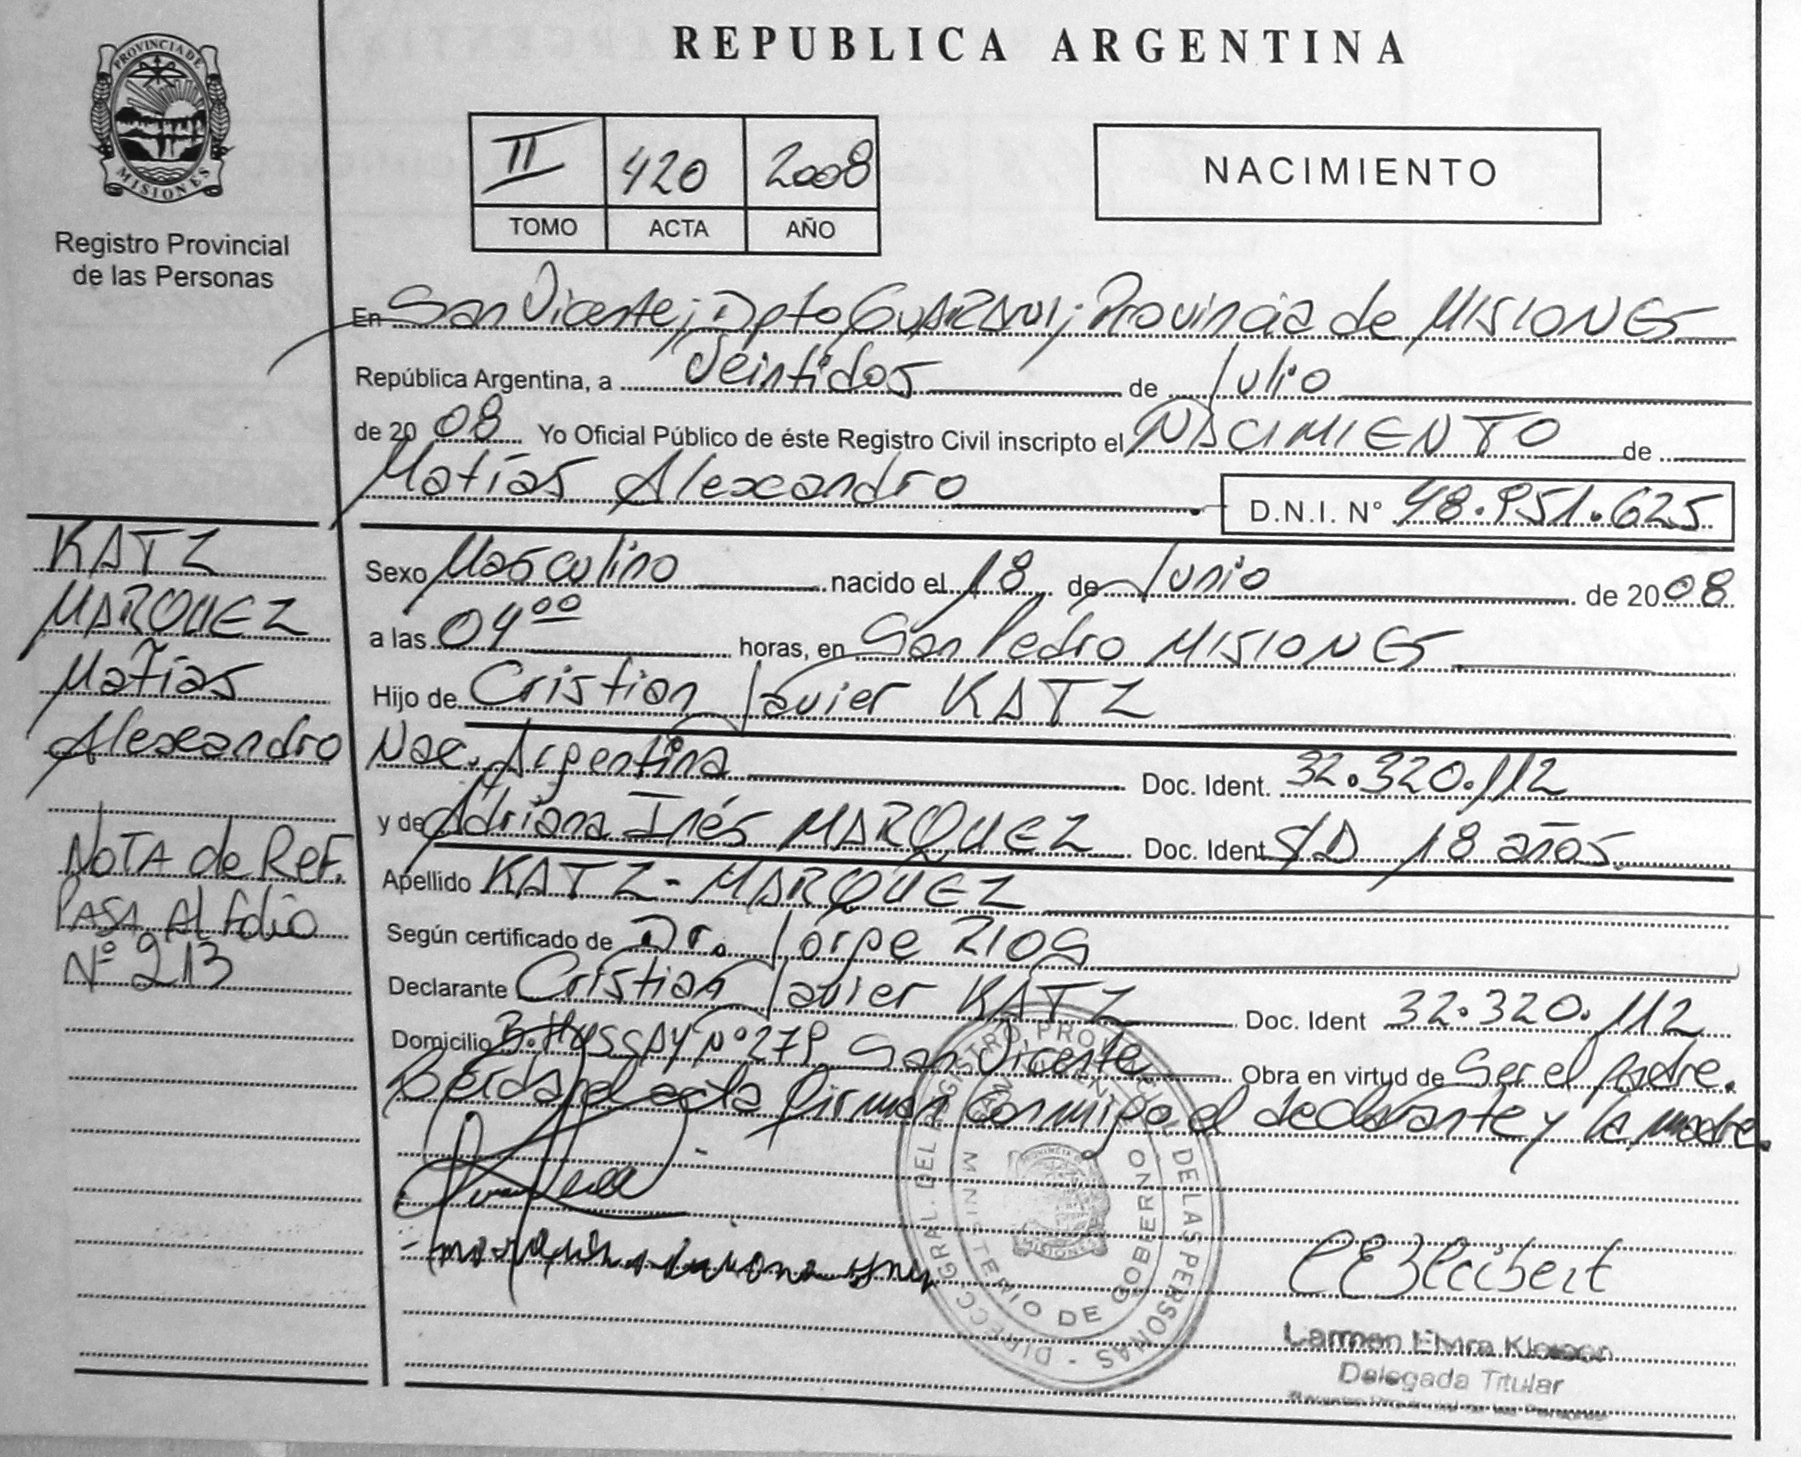 PROVINCIA DE
MISIONES
Registro Provincial
de las Personas
REPUBLICA ARGENTINA
II 420 2008
TOMO ACTA AÑO
NACIMIENTO
En San Vicente; Dpto GUARANI; Provincia de MISIONES
República Argentina, a Veintidos de Julio
de 2008 Yo Oficial Público de éste Registro Civil inscripto el NACIMIENTO de
Matías Alexandro
D.N.I. Nº 48.951.625
KATZ
MARQUEZ
Matías
Alexandro
NOTA de REF.
PASA Al folio
Nº 213
Sexo Masculino nacido el 18 de Junio de 2008
a las 04⁰⁰ horas, en San Pedro MISIONES
Hijo de Cristian Javier KATZ
Nac. Argentina Doc. Ident. 32.320.112
y de Adriana Inés MARQUEZ Doc. Ident S/D 18 años.
Apellido KATZ-MARQUEZ
Según certificado de Dr. Jorge RIOS
Declarante Cristian Javier KATZ Doc. Ident 32.320.112
Domicilio B. HUSSAY Nº 279 San Vicente Obra en virtud de Ser el padre.
el acta firman conmigo el declarante y la madre.
DIRECC. GRAL. DEL REGISTRO PROVINCIAL DE LAS PERSONAS
MINISTERIO DE GOBIERNO
SAN VICENTE
PROVINCIA DE
MISIONES
Carmen Elvira
Delegada Titular
Registro Provincial de las Personas